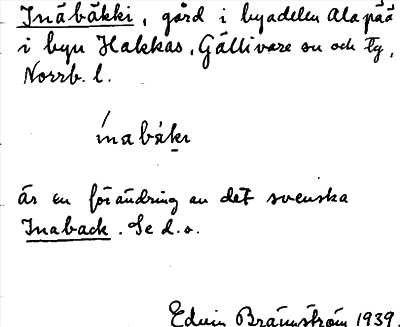 Inäbäkki, gård i byadelen Alapää
i byn Hakkas, Gällivare sn och tg,
Norrb. l.
ínabàki
är en förändring av det svenska
Inaback. Se d.o.
Edvin Brännström 1939.